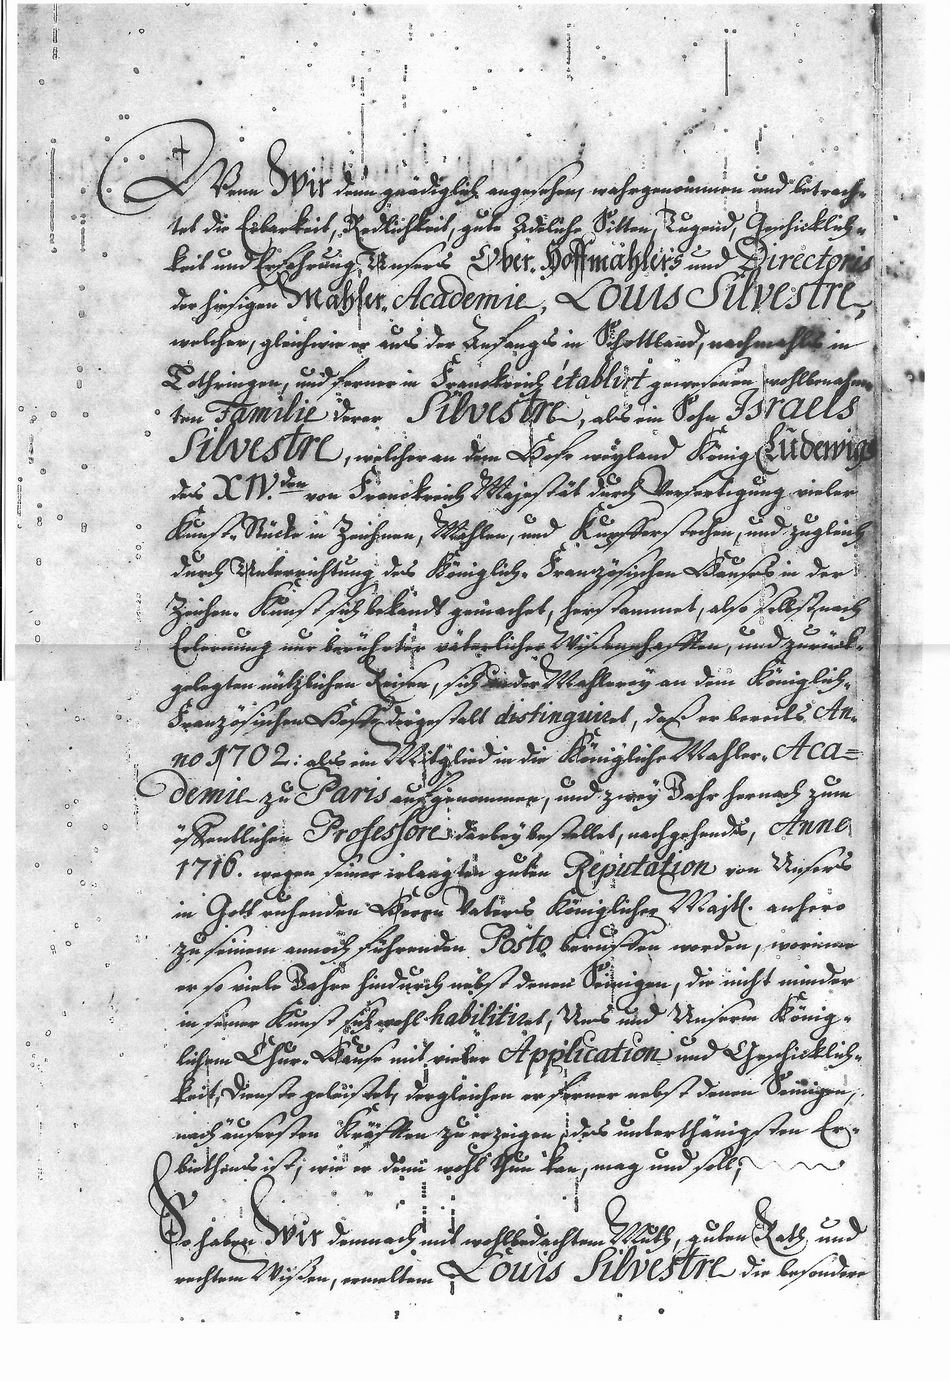 Wenn Wir denn gnädiglich angesehen, wahrgenommen und betrach-
tet die Erbarkeit, Redlichkeit, gute Adeliche Sitten, Tugend, Geschicklich-
keit und Erfahrung, Unsers Ober-Hoffmahlers und Directoris
der hiesigen Mahler-Academie, Louis Silvestre,
welcher, gleichwie er aus der Anfangs in Schottland, nachmahls in
Lothringen, und ferner in Franckreich établirt gewesenen wohlbenahm-
ten Familie derer Silvestre, als ein Sohn Israels
Silvestre, welcher an dem Hofe weyland König Ludewigs
des XIV.den von Franckreich Majestät durch Verfertigung vieler
Kunst-Stücke in Zeichnen, Mahlen, und Kupfferstechen, und zugleich
durch Unterrichtung des Königlich-Französischen Hauses in der
Zeichen-Kunst sich bekandt gemachet, herstammet, also selbst nach
Erlernung nur berührter väterlicher Wißenschafften, und zurück-
gelegten nützlichen Reisen, sich in der Mahlerey an dem Königlich-
Französischen Hofe dergestalt distinguiret, daß er bereits An-
no 1702. als ein Mitglied in die Königliche Mahler-Aca=
demie zu Paris aufgenommen, und zwey Jahr hernach zum
öffentlichen Professore darbey bestellet, nachgehends, Anno
1716. wegen seiner erlangten guten Reputation von Unsers
in Gott ruhenden Herrn Vaters Königlicher Majt. anhero
zu seinem annoch führenden Posto beruffen worden, worinne
er so viele Jahre hindurch nebst denen Seinigen, die nicht minder
in seiner Kunst sich wohl habilitiret, Uns und Unserm König-
lichen Chur-Hause mit vieler Application und Geschicklich-
keit, Dienste geleistet, dergleichen er ferner nebst denen Seinigen,
nach äusersten Kräfften zu erzeigen, des unterthänigsten Er-
biethens ist, wie er denn wohl thun kan, mag und soll;
So haben Wir demnach mit wohlbedachtem Muth, guten Rath und
rechtem Wißen, ermeltem Louis Silvestre die besondere